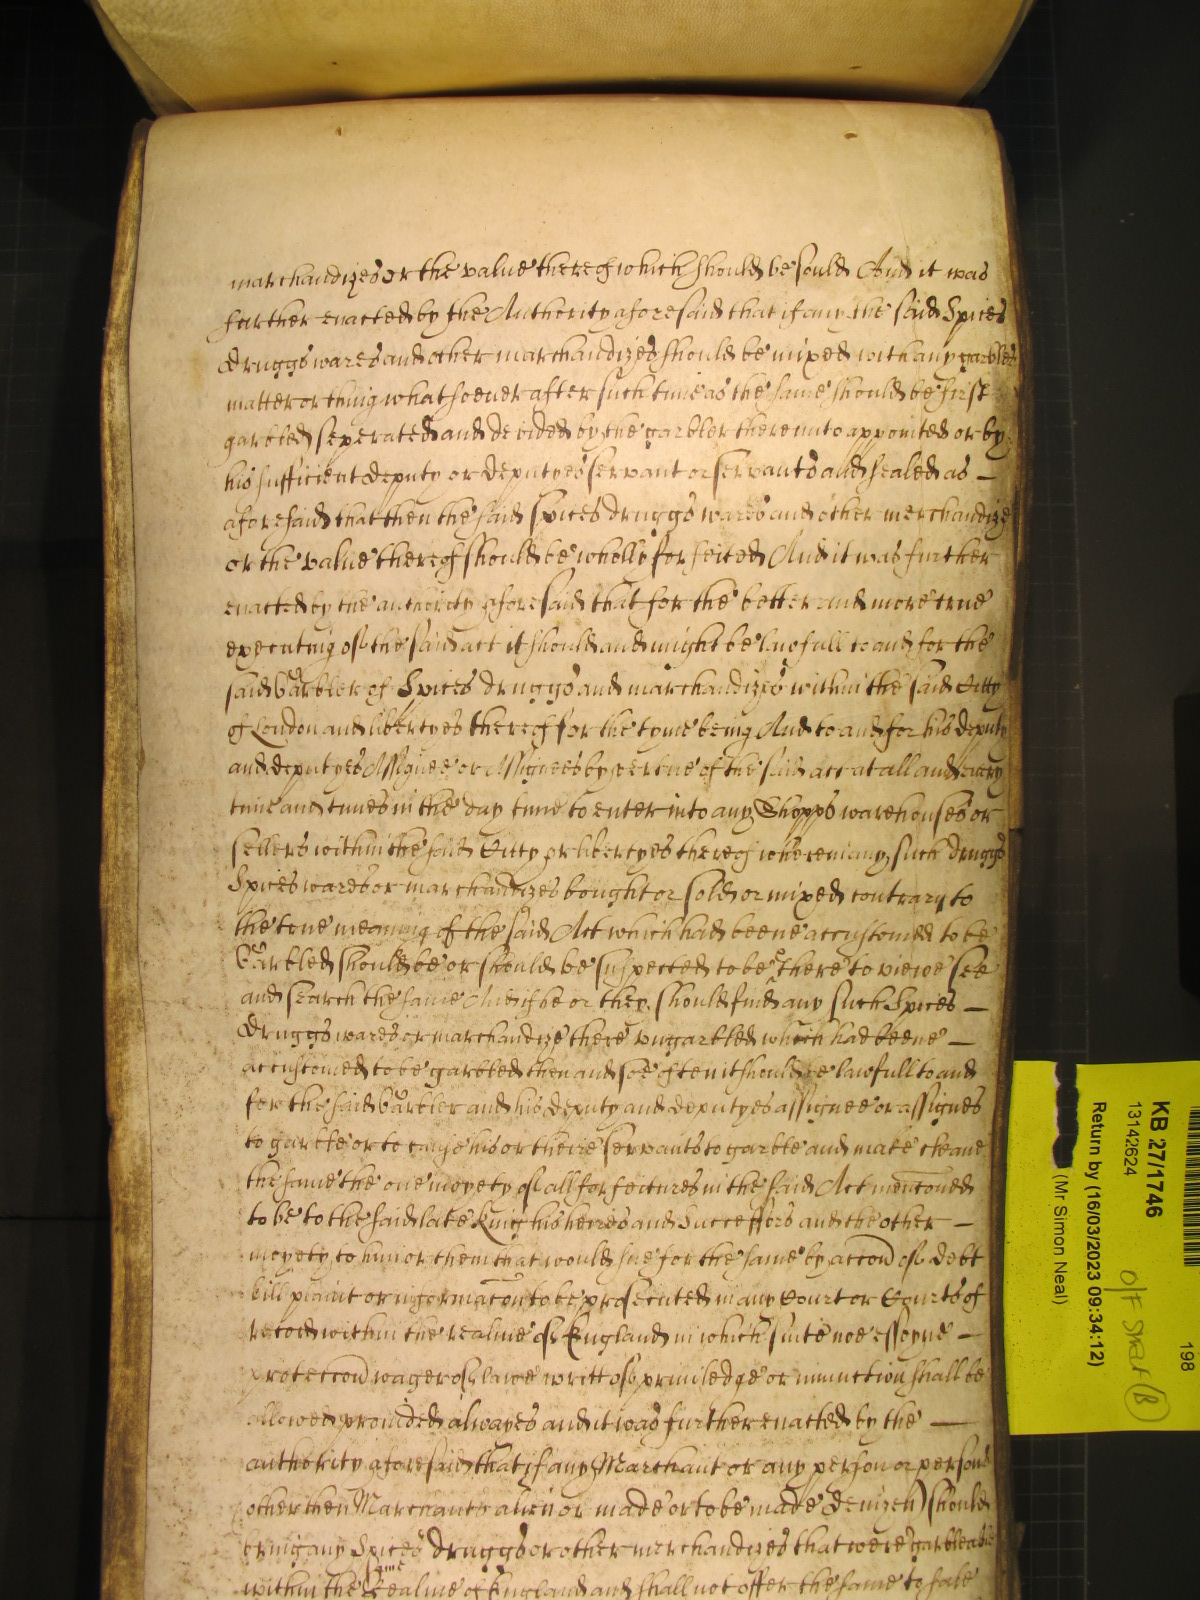 marchandizes or the value thereof which should be sould And it was
further enacted by the Authority aforesaid that if any the said Spices
druggs wares and other marchandizes should be mixed with any garbles
matter or thing whatsoever after such time as the same should be first
garbled seperated and devided by the garbler thereunto appointed or by
his sufficient deputy or deputyes servant or servants and sealed as —
aforesaid that then the said spices druggs wares and other merchandize
or the value thereof should be wholly forfeited And it was further
enacted by the authority aforesaid that for the better and more true
executing of the said act it should and might be lawfull to and for the
said Garbler of Spices druggs and marchandizes within the said Citty
of London and libertyes thereof for the tyme being And to and for his deputy
and deputyes Assignee or Assignees by vertue of the said act at all and every
time and times in the day time to enter into any Shopps warehouses or
sellers within the said Citty or libertyes thereof wherein any such druggs
Spices wares or marchandizes bought or sold or mixed contrary to
the true meaning of the said Act which had beene accustomed to be
Garbled should be or should be suspected to be there to viewe see
and search the same And if he or they should find any such Spices —
druggs wares or marchandize there ungarbled which had beene —
accustomed to be garbled then and soe often it should be lawfull to and
for the said Garbler and his deputy and deputyes assignee or assignes
to garble or to cause his or theire servants to garble and make cleane
the same the one moyety of all forfeitures in the said Act menconed
to be to the said late King his heires and Successors and the other —
moyety to him or them that would sue for the same by accon of debt
bill plaint or informacon to be prosecuted in any Court or Courts of
record within the realme of England in which suite noe essoyne —
proteccon wager of lawe writt of priviledge or injunction shall be
allowed provided alwayes and it was further enacted by the —
authority aforesaid that if any Marchant or any person or persons
other then Marchants alien or made or to be made Denizen) should
bring any Spices druggs or other merchandizes that were garbleable
same
within the Realme of England and shall not offer the same to sale
KB 27/1746
13142624
Return by (16/03/2023 09:34:12)
(Mr Simon Neal)
198
O/F